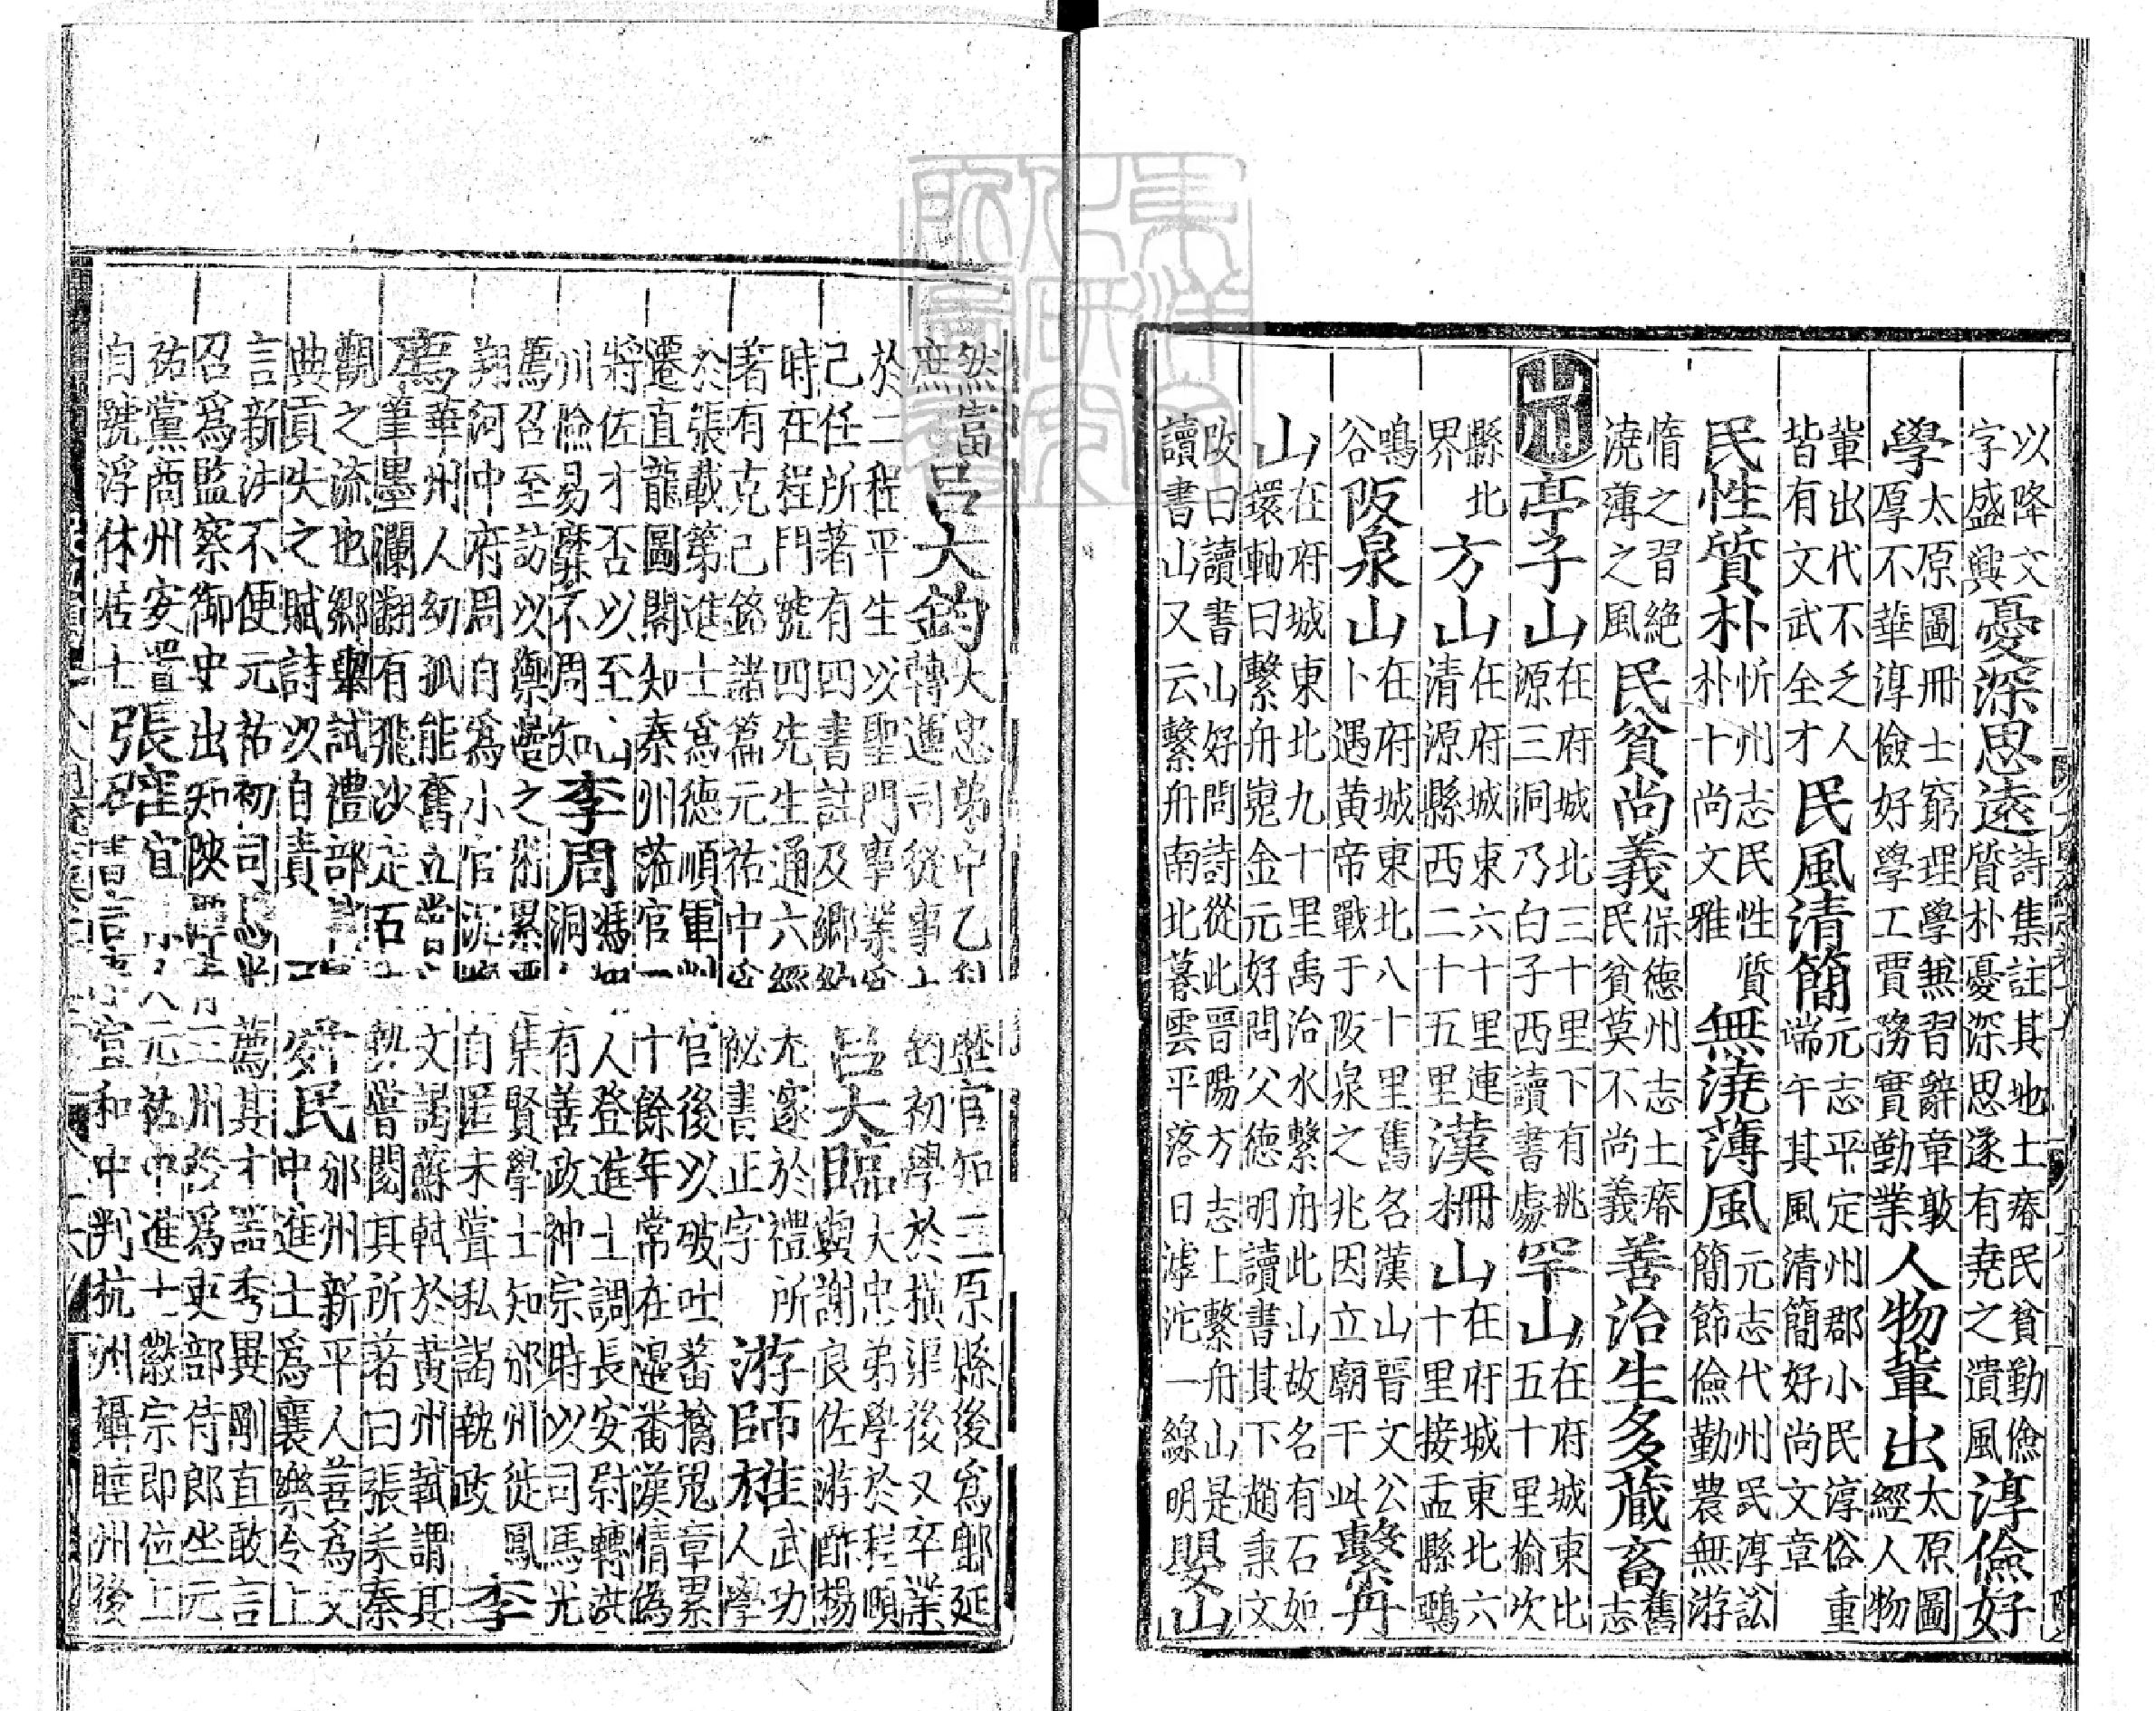 以降文字盛興憂深思遠詩集註其地土瘠民貧勤儉質朴憂深思遠有堯之遺風淳儉好
學太原圖冊士窮理學無習辭章敦厚不華淳儉好學工賈務實勤業人物輩出太原圖經人物
輩出代不乏人皆有文武全才民風清簡元志平定州郡小民淳俗重端午其風清簡好尚文章
民性質朴忻州志民性質朴十尚文雅無澆薄風元志代州民淳訟簡節儉勤農無游
惰之習絶澆薄之風民貧尚義保德州志土瘠民貧莫不尚義善治生多藏畜舊志
山川亭子山在府城北三十里下有桃源三洞乃白子西讀書處罕山在府城東北五十里榆次
縣北界方山在府城東六十里連清源縣西二十五里漢柵山在府城東北六十里接盂縣鵶
鳴谷阪泉山在府城東北八十里舊名漢山晉文公卜遇黄帝戰于阪泉之兆因立廟于此繫舟
山在府城東北九十里禹治水繫舟此山故名有石如環軸曰繫舟嵬金元好問父德明讀書其下趙秉文
改曰讀書山好問詩從此晉陽方志上繫舟山是讀書山又云繫舟南北暮雲平落日滹沱一線明嬰山
然富庶吕大鈞大忠弟中乙科歷官知三原縣後爲鄜延轉運司從事大鈞初學於横渠後又卒業
於二程平生以聖門事業爲己任所著有四書註及鄉約吕大臨大忠弟學於程頤與謝良佐游酢楊
時在程門號四先生通六經尤邃於禮所著有克己銘諸篇元祐中爲秘書正字游師雄武功人學
於張載第進士爲德順軍判官後以破吐蕃擒鬼章累遷直龍圖閣知秦州蒞官二十餘年常在邊番漢情偽
將佐才否以至山川險易靡不周知李周馮翊人登進士調長安尉轉洪洞令有善政神宗時以司馬光
薦召至訪以禦邊之術累集賢學士知邠州徙鳳翔河中府周自爲小官沉晦自匿未嘗私謁執政李
廌華州人幼孤能奮立嘗以文謁蘇軾於黃州軾謂其筆墨瀾翻有飛沙走石之勢嘗閱其所著曰張耒秦
觀之流也鄉舉試禮部軾典貢失之賦詩以自責張舜民邠州新平人善爲文中進士爲襄樂令上
言新法不便元祐初司馬光薦其才器秀異剛直敢言召爲監察御史出知陝三州終爲吏部侍郎坐元
祐黨商州安置自號浮休居士張元祐中進士徽宗即位上書言事宣和中判杭州攝睦州後